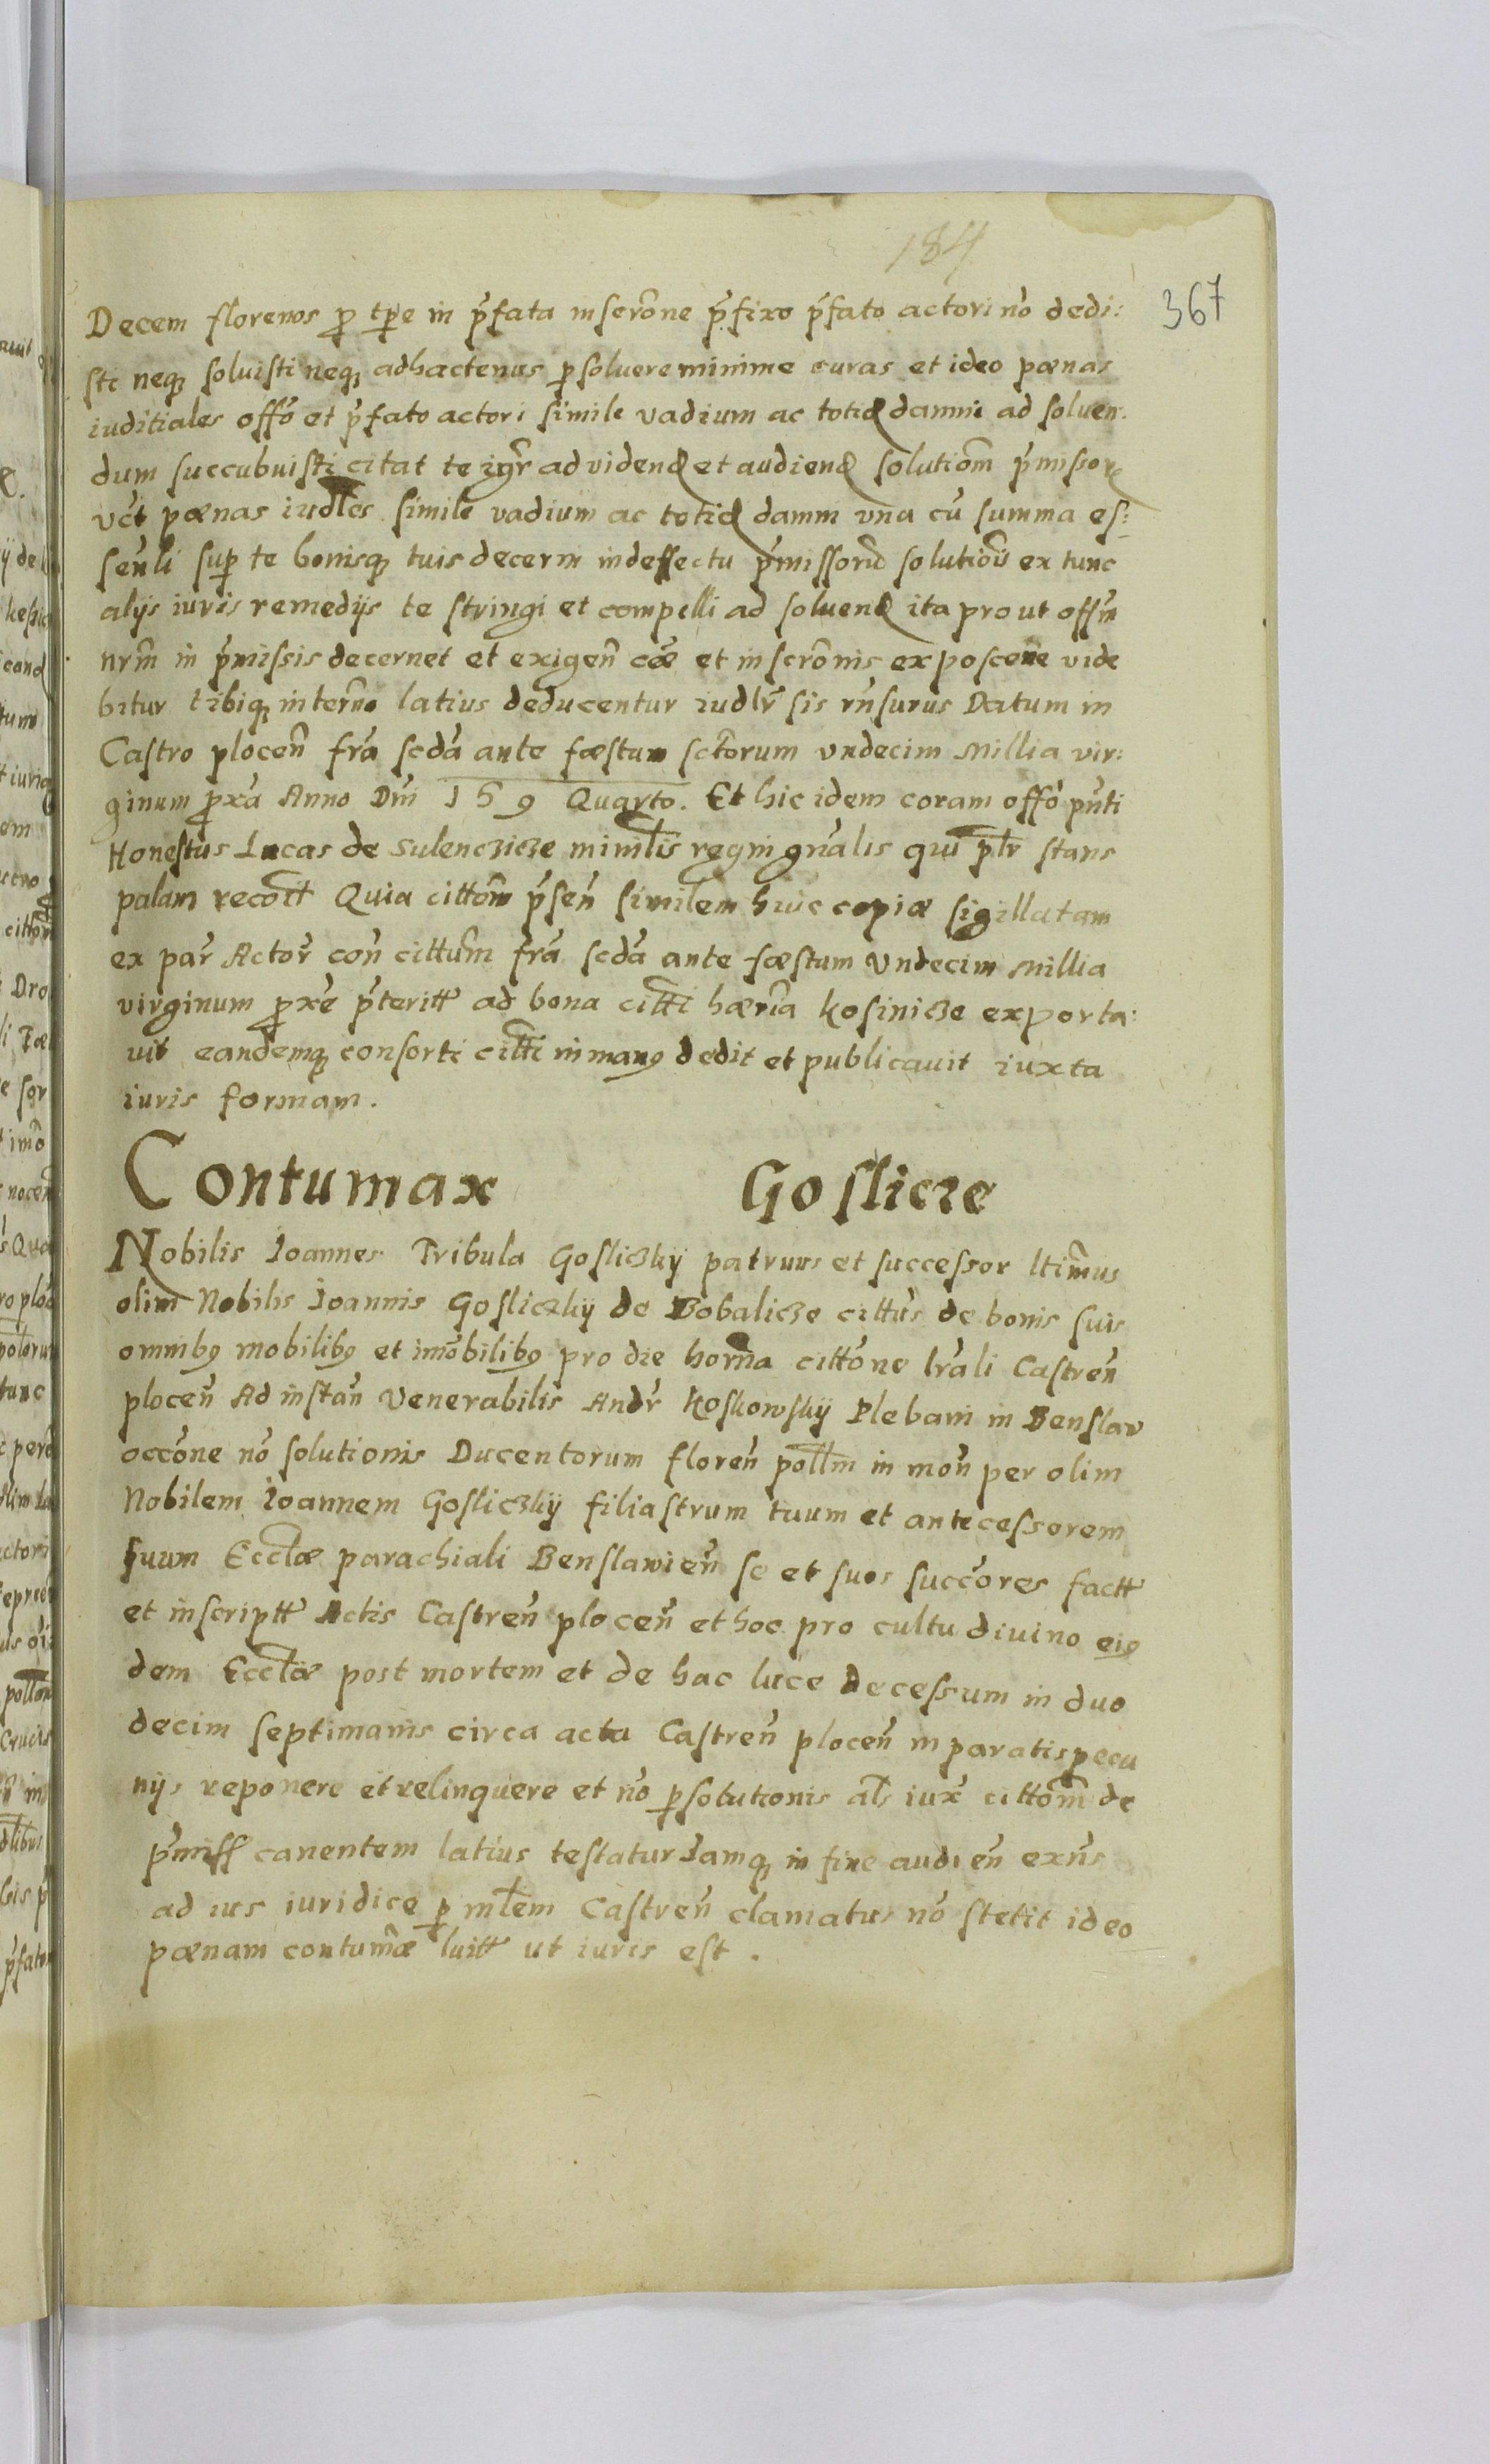 184
367
Decem florenos p tpre in pfata inscrone pfixo pfato actori no dedi:
sti neq soluisti neq adhactenus psoluere minime curas et ideo pœnas
iuditiales offo et pfato actori simile vadium ac totid damni ad soluen-
dum succubuisti citat te igr ad vidend et audiend solutiom pmissor
vct pœnas iudles simile vadium ac totid damni vna cu summa es:
senli sup te bonisq tuis decerni in deffectu pmissoru solutiois ex tunc
alijs iuris remedijs te stringi et compelli ad soluend ita prout offm
nrm in pmissis decernet et exigen cœ et inscronis exposcere vide
bitur tibiq in termo latius deducentur iudlr sis rnsurus Datum in
Castro plocen fra scda ante fæstum sctorum vndecim Millia vir:
ginum pxa Anno Dni 159 Quarto. Et hic idem coram offo pnti
Honestus Lucas de Sulenczicze minilis regni gnalis qui plr stans
palam recott Quia cittom psen similem huic copiæ sigillatam
ex par Actor con cittum fra scda ante fæstum Vndecim Millia
virginum pxe pteritt ad bona citti hæria Kosinicze exporta:
uit eandemq consorti citti in manq dedit et publicauit iuxta
iuris formam.
Contumax Goslicze
Nobilis Joannes Tribula Gosliczkij patruus et successor ltimus
olim Nobilis Joannis Gosliczkij de Bobalicze cittus de bonis suis
omnibq mobilibq et imobilibq pro die horna cittone lrali Castren
plocen Ad instan Venerabilis Andr Koskowskij Plebani in Benslaw
occone no solutionis Ducentorum floren pollm in mon per olim
Nobilem Joannem Gosliczkij filiastrum tuum et antecessorem
suum Ecclæ parachiali Benslawien se et suos succores factt
et inscriptt Actis Castren plocen et hoc pro cultu diuino eiq
dem Ecclæ post mortem et de hac luce decessum in duo
decim septimanis circa acta Castren plocen in paratis pecu
nijs reponere et relinquere et no psolutionis als iux cittom de
pmiss canentem latius testatur Jamq in fine audien exns
ad ius iuridice p mlem Castren clamatus no stetit ideo
pœnam contumæ luitt ut iuris est.